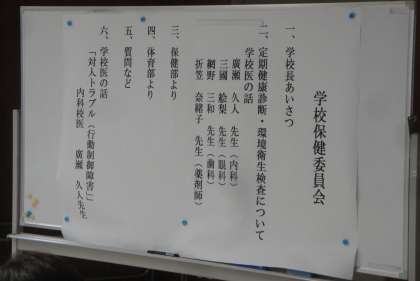 学校保健委員会
一、学校長あいさつ
二、定期健康診断・環境衛生検査について
学校医の話
廣瀬 久人 先生(内科)
三國 絵梨 先生(眼科)
網野 三和 先生(歯科)
折笠 奈緒子 先生(薬剤師)
三、保健部より
四、体育部より
五、質問など
六、学校医の話
「対人トラブル(行動制御障害)」
内科校医 廣瀬 久人先生